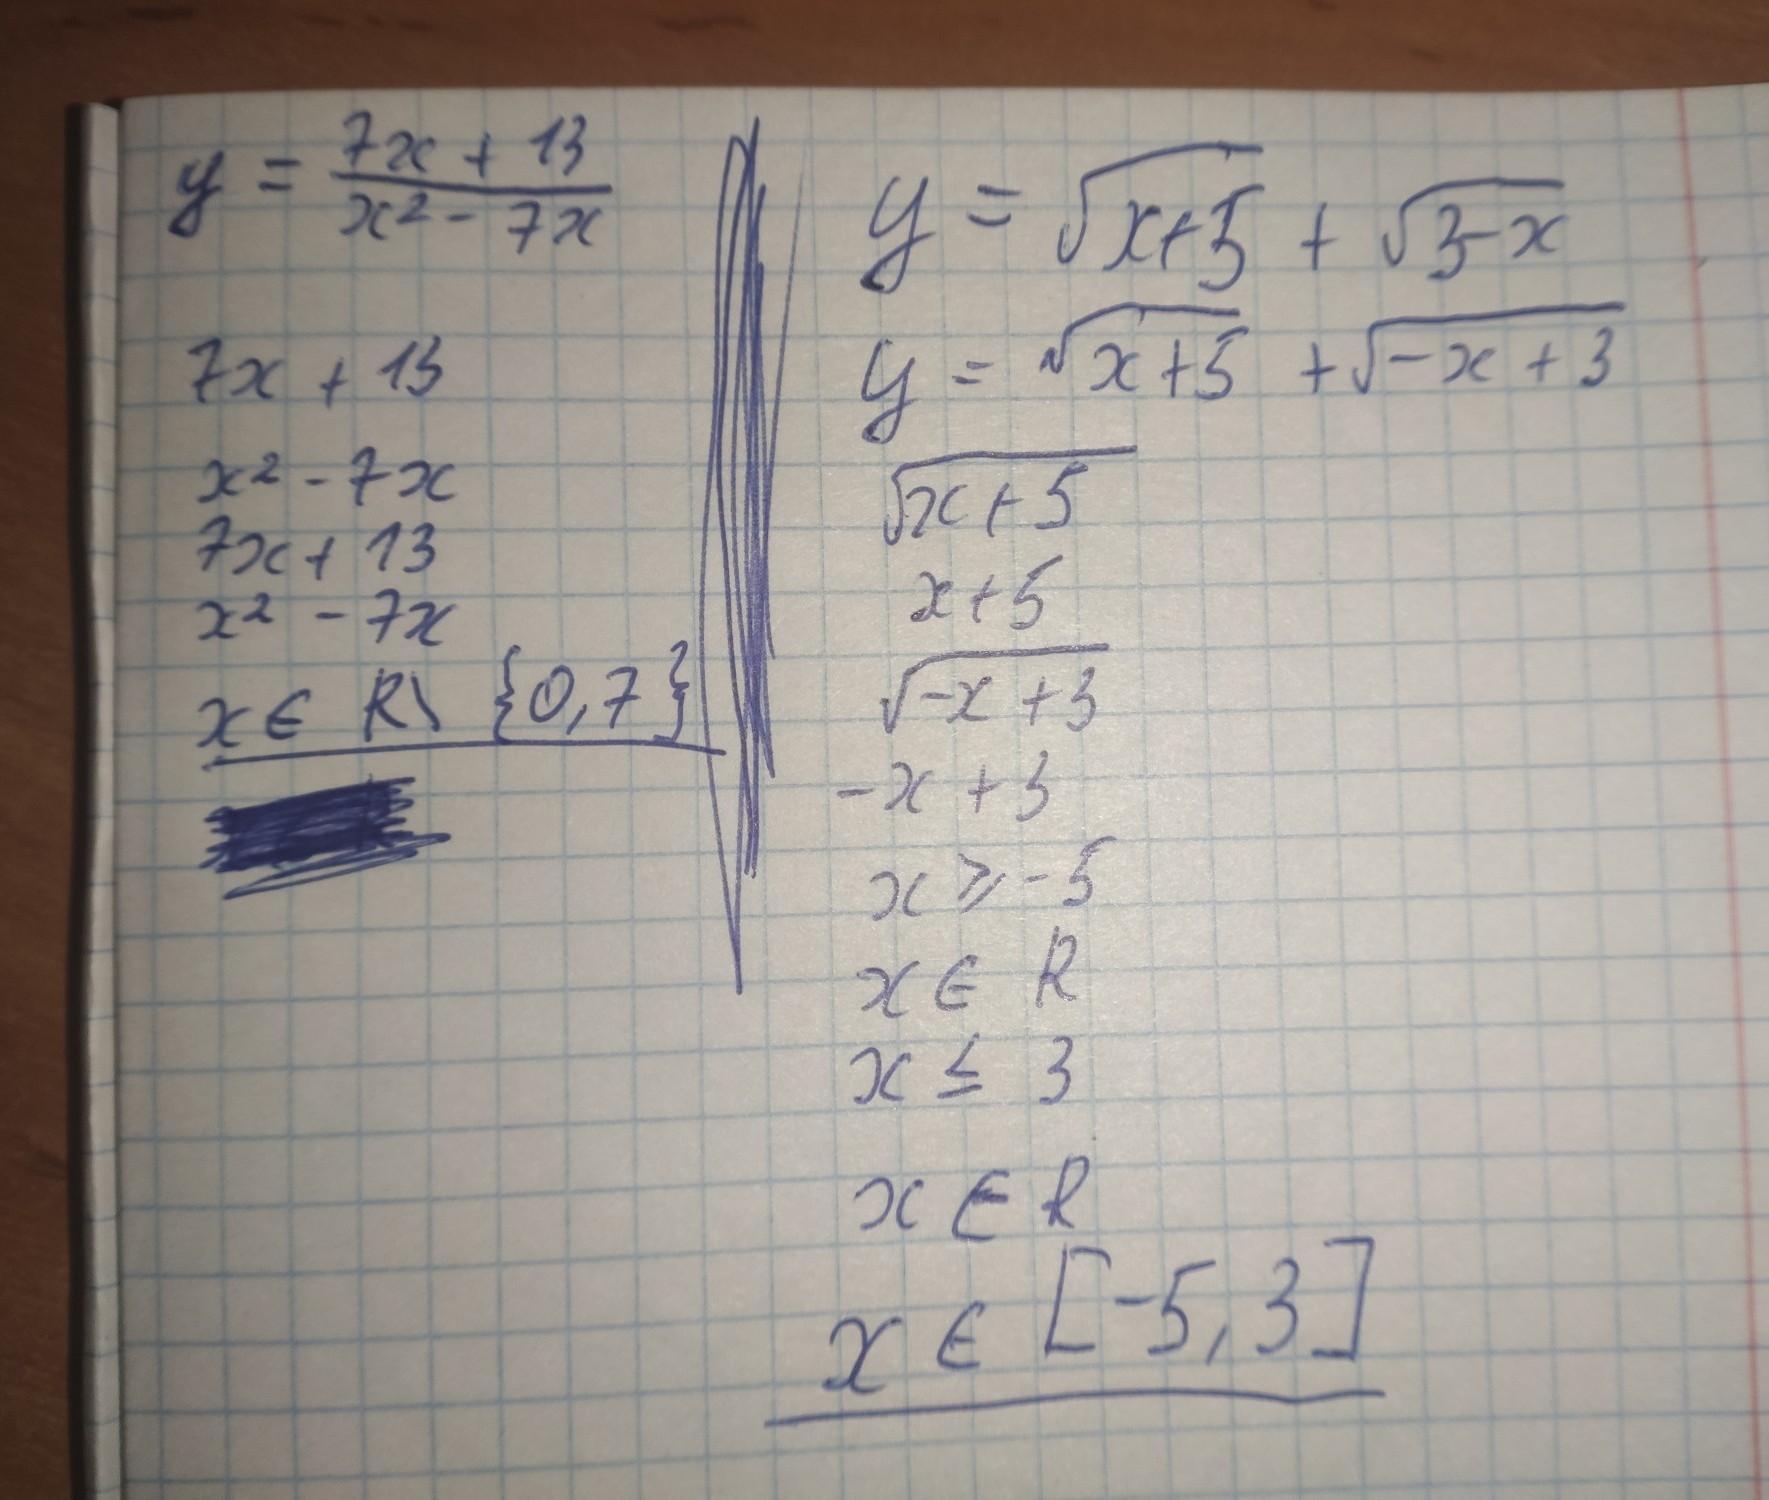 y = (7x + 13)/(x² - 7x)
7x + 13
x² - 7x
7x + 13
x² - 7x
x ∈ R\ {0,7}
y = √(x+5) + √(3-x)
y = √(x+5) + √(-x+3)
√(x+5)
x+5
√(-x+3)
-x+3
x ⩾ -5
x ∈ R
x ≤ 3
x ∈ R
x ∈ [-5,3]